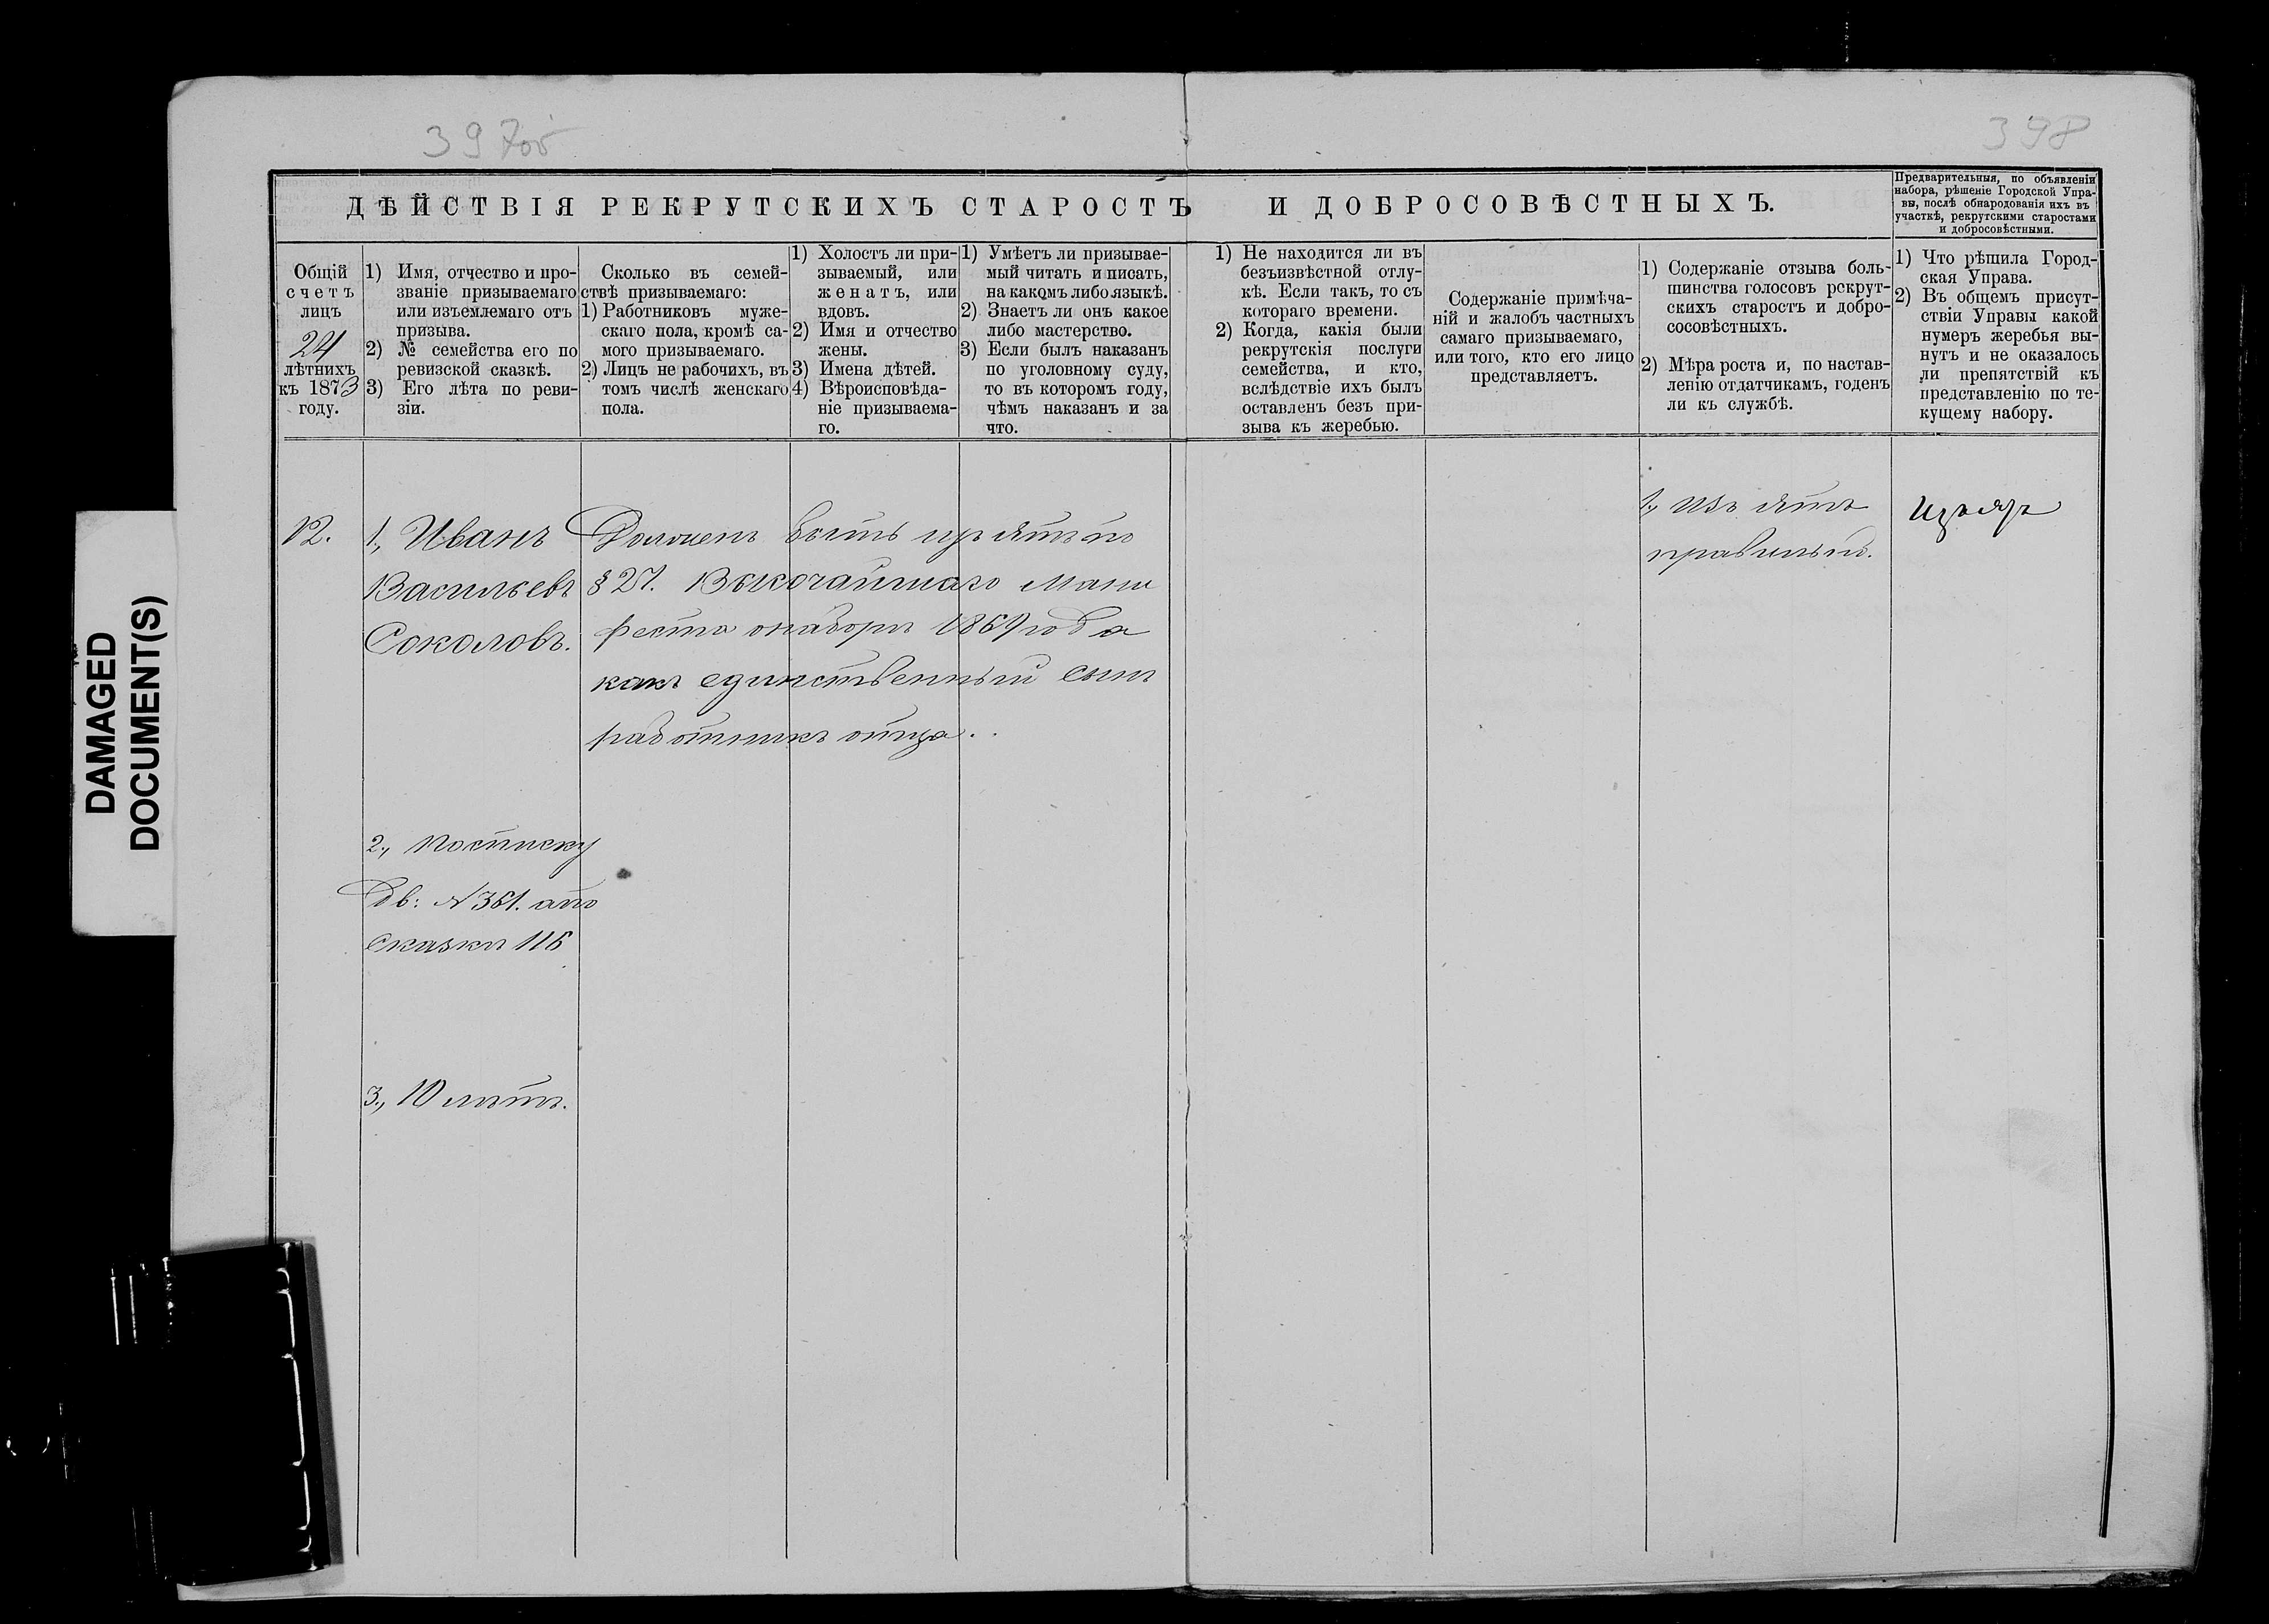 397об
398
ДѢЙСТВІЯ РЕКРУТСКИХЪ СТАРОСТЪ И ДОБРОСОВѢСТНЫХЪ.
Предварительныя, по объявленіи
набора, рѣшеніе Городской Упра-
вы, послѣ обнародованія ихъ въ
участкѣ, рекрутскими старостами
и добросовѣстными.
Общій
счетъ
лицъ
24
лѣтнихъ
къ 1873
году.
1) Имя, отчество и про-
званіе призываемаго
или изъемлемаго отъ
призыва.
2) № семейства его по
ревизской сказкѣ.
3) Его лѣта по реви-
зіи.
Сколько въ семей-
ствѣ призываемаго:
1) Работниковъ муже-
скаго пола, кромѣ са-
мого призываемаго.
2) Лицъ не рабочихъ, въ
томъ числѣ женскаго
пола.
1) Холостъ ли при-
зываемый, или
женатъ, или
вдовъ.
2) Имя и отчество
жены.
3) Имена дѣтей.
4) Вѣроисповѣда-
ніе призываема-
го.
1) Умѣетъ ли призывае-
мый читать и писать,
на какомъ либо языкѣ.
2) Знаетъ ли онъ какое
либо мастерство.
3) Если былъ наказанъ
по уголовному суду,
то въ которомъ году,
чѣмъ наказанъ и за
что.
1) Не находится ли въ
безъизвѣстной отлу-
кѣ. Если такъ, то съ
котораго времени.
2) Когда, какія были
рекрутскія послуги
семейства, и кто,
вслѣдствіе ихъ былъ
оставленъ безъ при-
зыва къ жеребью.
Содержаніе примѣча-
ній и жалобъ частныхъ
самаго призываемаго,
или того, кто его лицо
представляетъ.
1) Содержаніе отзыва боль-
шинства голосовъ рекрут-
скихъ старостъ и добро-
сосовѣстныхъ.
2) Мѣра роста и, по настав-
ленію отдатчикамъ, годенъ
ли къ службѣ.
1) Что рѣшила Город-
ская Управа.
2) Въ общемъ присут-
ствіи Управы какой
нумеръ жеребья вы-
нутъ и не оказалось
ли препятствій къ
представленію по те-
кущему набору.
12.
1, Иванъ
Васильевъ
Соколовъ.
Долженъ быть изъятъ по
§ 21. Высочайшаго Мани
феста о наборѣ 1869 года
какъ единственный сынъ
работникъ отца.
1, Изъятъ
правильно.
Изъять
2, По списку
Дв: № 361. а по
сказкѣ 116
3, 10 лѣтъ.
DAMAGED
DOCUMENT(S)